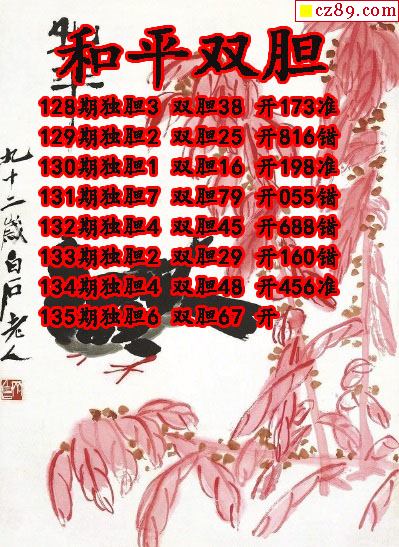 cz89.com
和平双胆
128期独胆3 双胆38 开173准
129期独胆2 双胆25 开816错
130期独胆1 双胆16 开198准
131期独胆7 双胆79 开055错
132期独胆4 双胆45 开688错
133期独胆2 双胆29 开160错
134期独胆4 双胆48 开456准
135期独胆6 双胆67 开
九十二岁白石老人